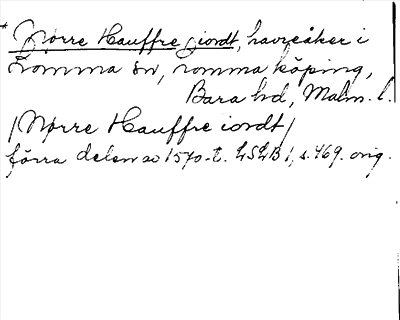 * Nørre Hauffre jordt, havreåker i
Lomma sn, Lomma köping,
Bara hd, Malm. l.
/Nørre Hauffre iordt/
förra delen av 1570-t. LSLB 1, s. 469. orig.